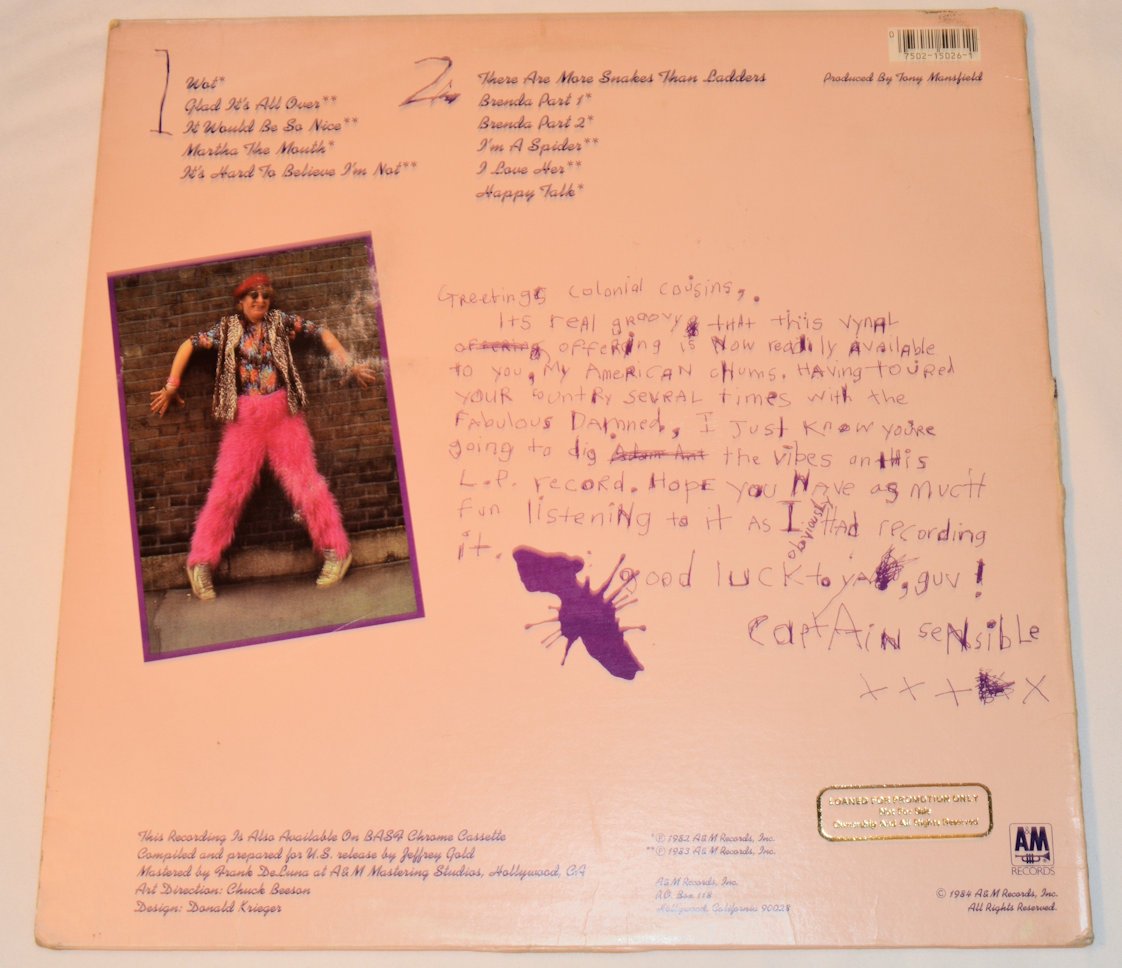 1
Wot*
Glad It's All Over**
It Would Be So Nice**
Martha The Mouth*
It's Hard To Believe I'm Not**
2
There Are More Snakes Than Ladders
Brenda Part 1*
Brenda Part 2*
I'm A Spider**
I Love Her**
Happy Talk*
0
7502-15026-1
Produced By Tony Mansfield
Greetings colonial cousins,.
Its real groovy that this vynal
offering offering is Now readily available
to you, My American chums. Having toured
your country several times with the
Fabulous Damned, I Just know you're
going to dig Adam Ant the vibes on this
L.P. record. Hope you have as much
fun listening to it as I obviously had recording
it.
good luck to ya, guv!
Captain Sensible
x x x x
LOANED FOR PROMOTION ONLY
Not For Sale
Ownership And All Rights Reserved
This Recording Is Also Available On BASF Chrome Cassette
Compiled and prepared for U.S. release by Jeffrey Gold
Mastered by Frank DeLuna at A&M Mastering Studios, Hollywood, CA
Art Direction: Chuck Beeson
Design: Donald Krieger
*℗ 1982 A&M Records, Inc.
**℗ 1983 A&M Records, Inc.
A&M Records, Inc.
P.O. Box 118
Hollywood, California 90028
A&M
RECORDS
© 1984 A&M Records, Inc.
All Rights Reserved.